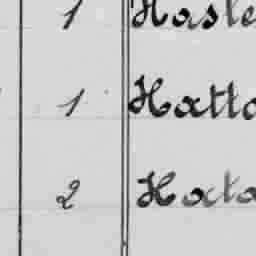 1 Hasle
1 Hatto
2 Hata